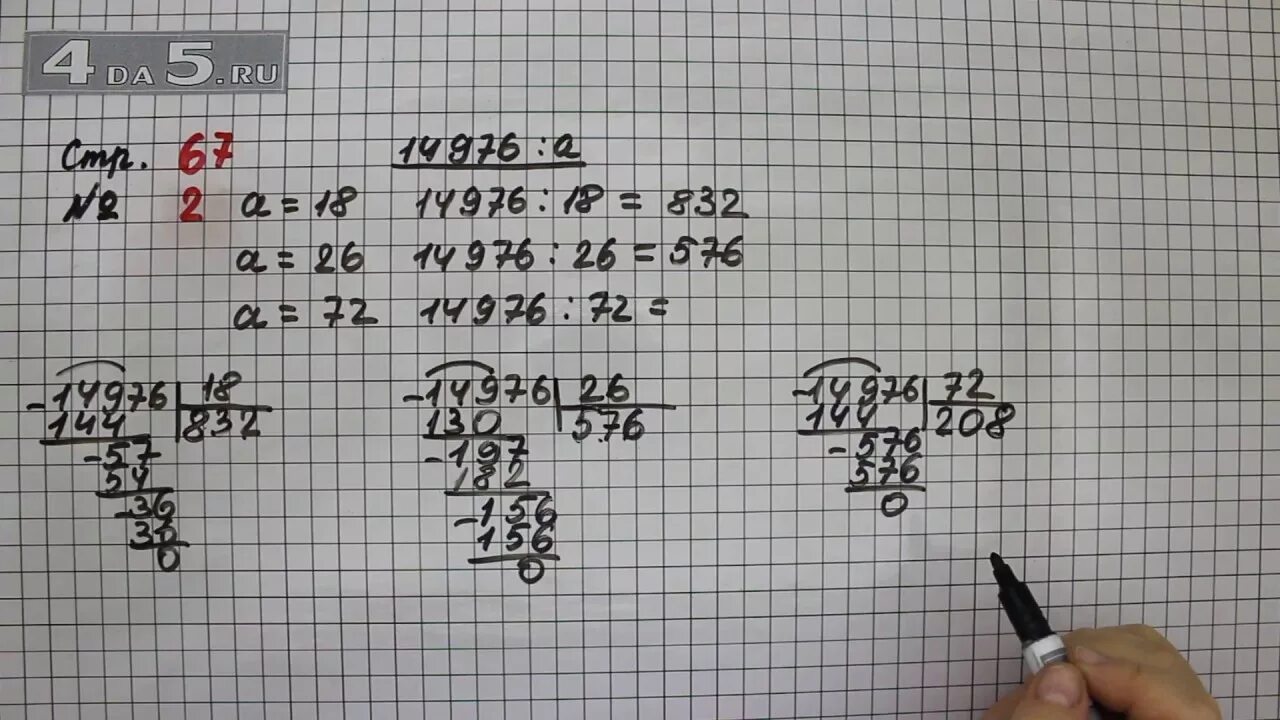 4DA5.RU
Стр. 67 14976 : a
№ 2 a = 18 14976 : 18 = 832
a = 26 14976 : 26 = 576
a = 72 14976 : 72 =
-14976 | 18
144 | 832
-57
54
-36
36
0
-14976 | 26
130 | 576
-197
182
-156
156
0
-14976 | 72
144 | 208
-576
576
0